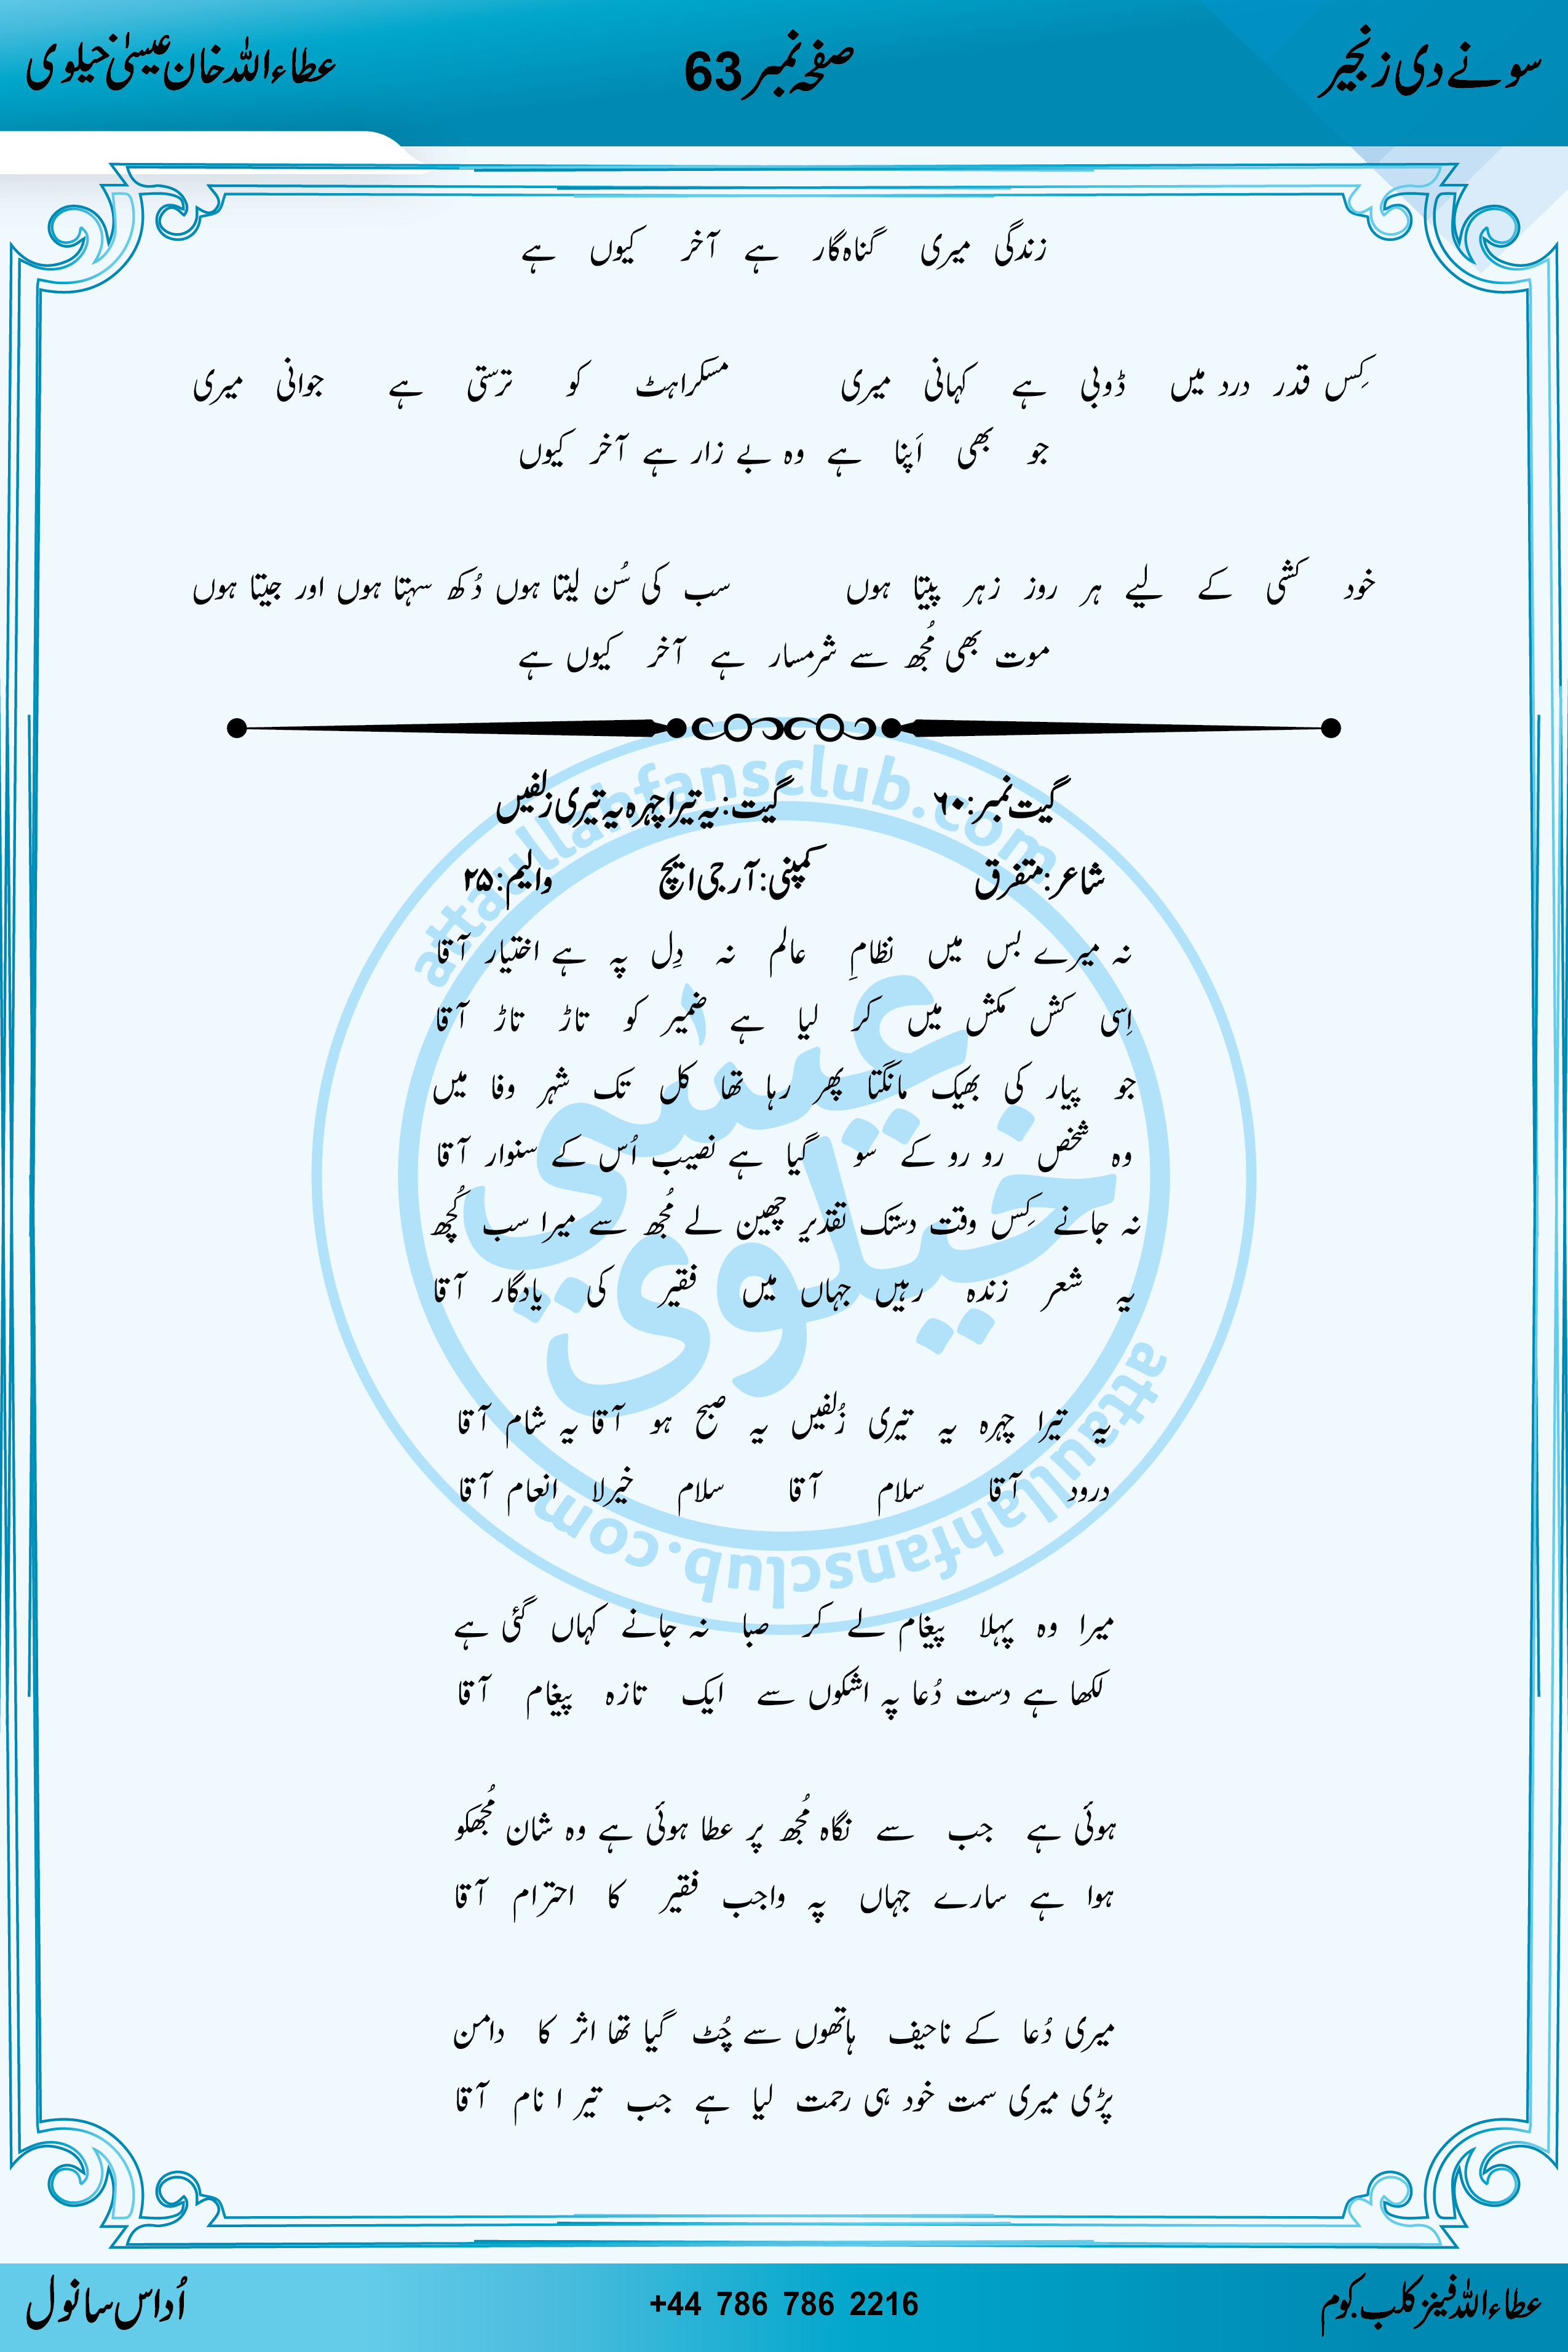 سونے دی زنجیر
صفحہ نمبر 63
عطاء اللہ خان عیسیٰ خیلوی
زندگی میری گناہ گار ہے آخر کیوں ہے
کِس قدر درد میں ڈوبی ہے کہانی میری مسکراہٹ کو ترستی ہے جوانی میری
جو بھی اَپنا ہے وہ بے زار ہے آخر کیوں
خود کشی کے لیے ہر روز زہر پیتا ہوں سب کی سُن لیتا ہوں دُکھ سہتا ہوں اور جیتا ہوں
موت بھی مُجھ سے شرمسار ہے آخر کیوں ہے
گیت نمبر: ۶۰ گیت: یہ تیرا چہرہ یہ تیری زلفیں
شاعر: متفرق کمپنی: آر جی ایچ والیم: ۲۵
نہ میرے بس میں نظامِ عالم نہ دِل پہ ہے اختیار آقا
اِسی کش مکش میں کر لیا ہے ضمیر کو تاڑ تاڑ آقا
جو پیار کی بھیک مانگتا پھر رہا تھا کل تک شہر وفا میں
وہ شخص رو رو کے سو گیا ہے نصیب اُس کے سنوار آقا
نہ جانے کِس وقت دستک تقدیر چھین لے مُجھ سے میرا سب کُچھ
یہ شعر زندہ رہیں جہاں میں فقیر کی یادگار آقا
یہ تیرا چہرہ یہ تیری زُلفیں یہ صبح ہو آقا یہ شام آقا
درود آقا سلام آقا سلام خیرلا انعام آقا
میرا وہ پہلا پیغام لے کر صبا نہ جانے کہاں گئی ہے
لکھا ہے دست دُعا پہ اشکوں سے ایک تازہ پیغام آقا
ہوئی ہے جب سے نگاہ مُجھ پر عطا ہوئی ہے وہ شان مُجھکو
ہوا ہے سارے جہاں پہ واجب فقیر کا احترام آقا
میری دُعا کے ناحیف ہاتھوں سے چُٹ گیا تھا اثر کا دامن
پڑی میری سمت خود ہی رحمت لیا ہے جب تیر ا نام آقا
attaullahfansclub.com
عیسٰی
خیلوی
attaullahfansclub.com
عطاء اللہ فینز کلب.کوم
+44 786 786 2216
اُداس سانول